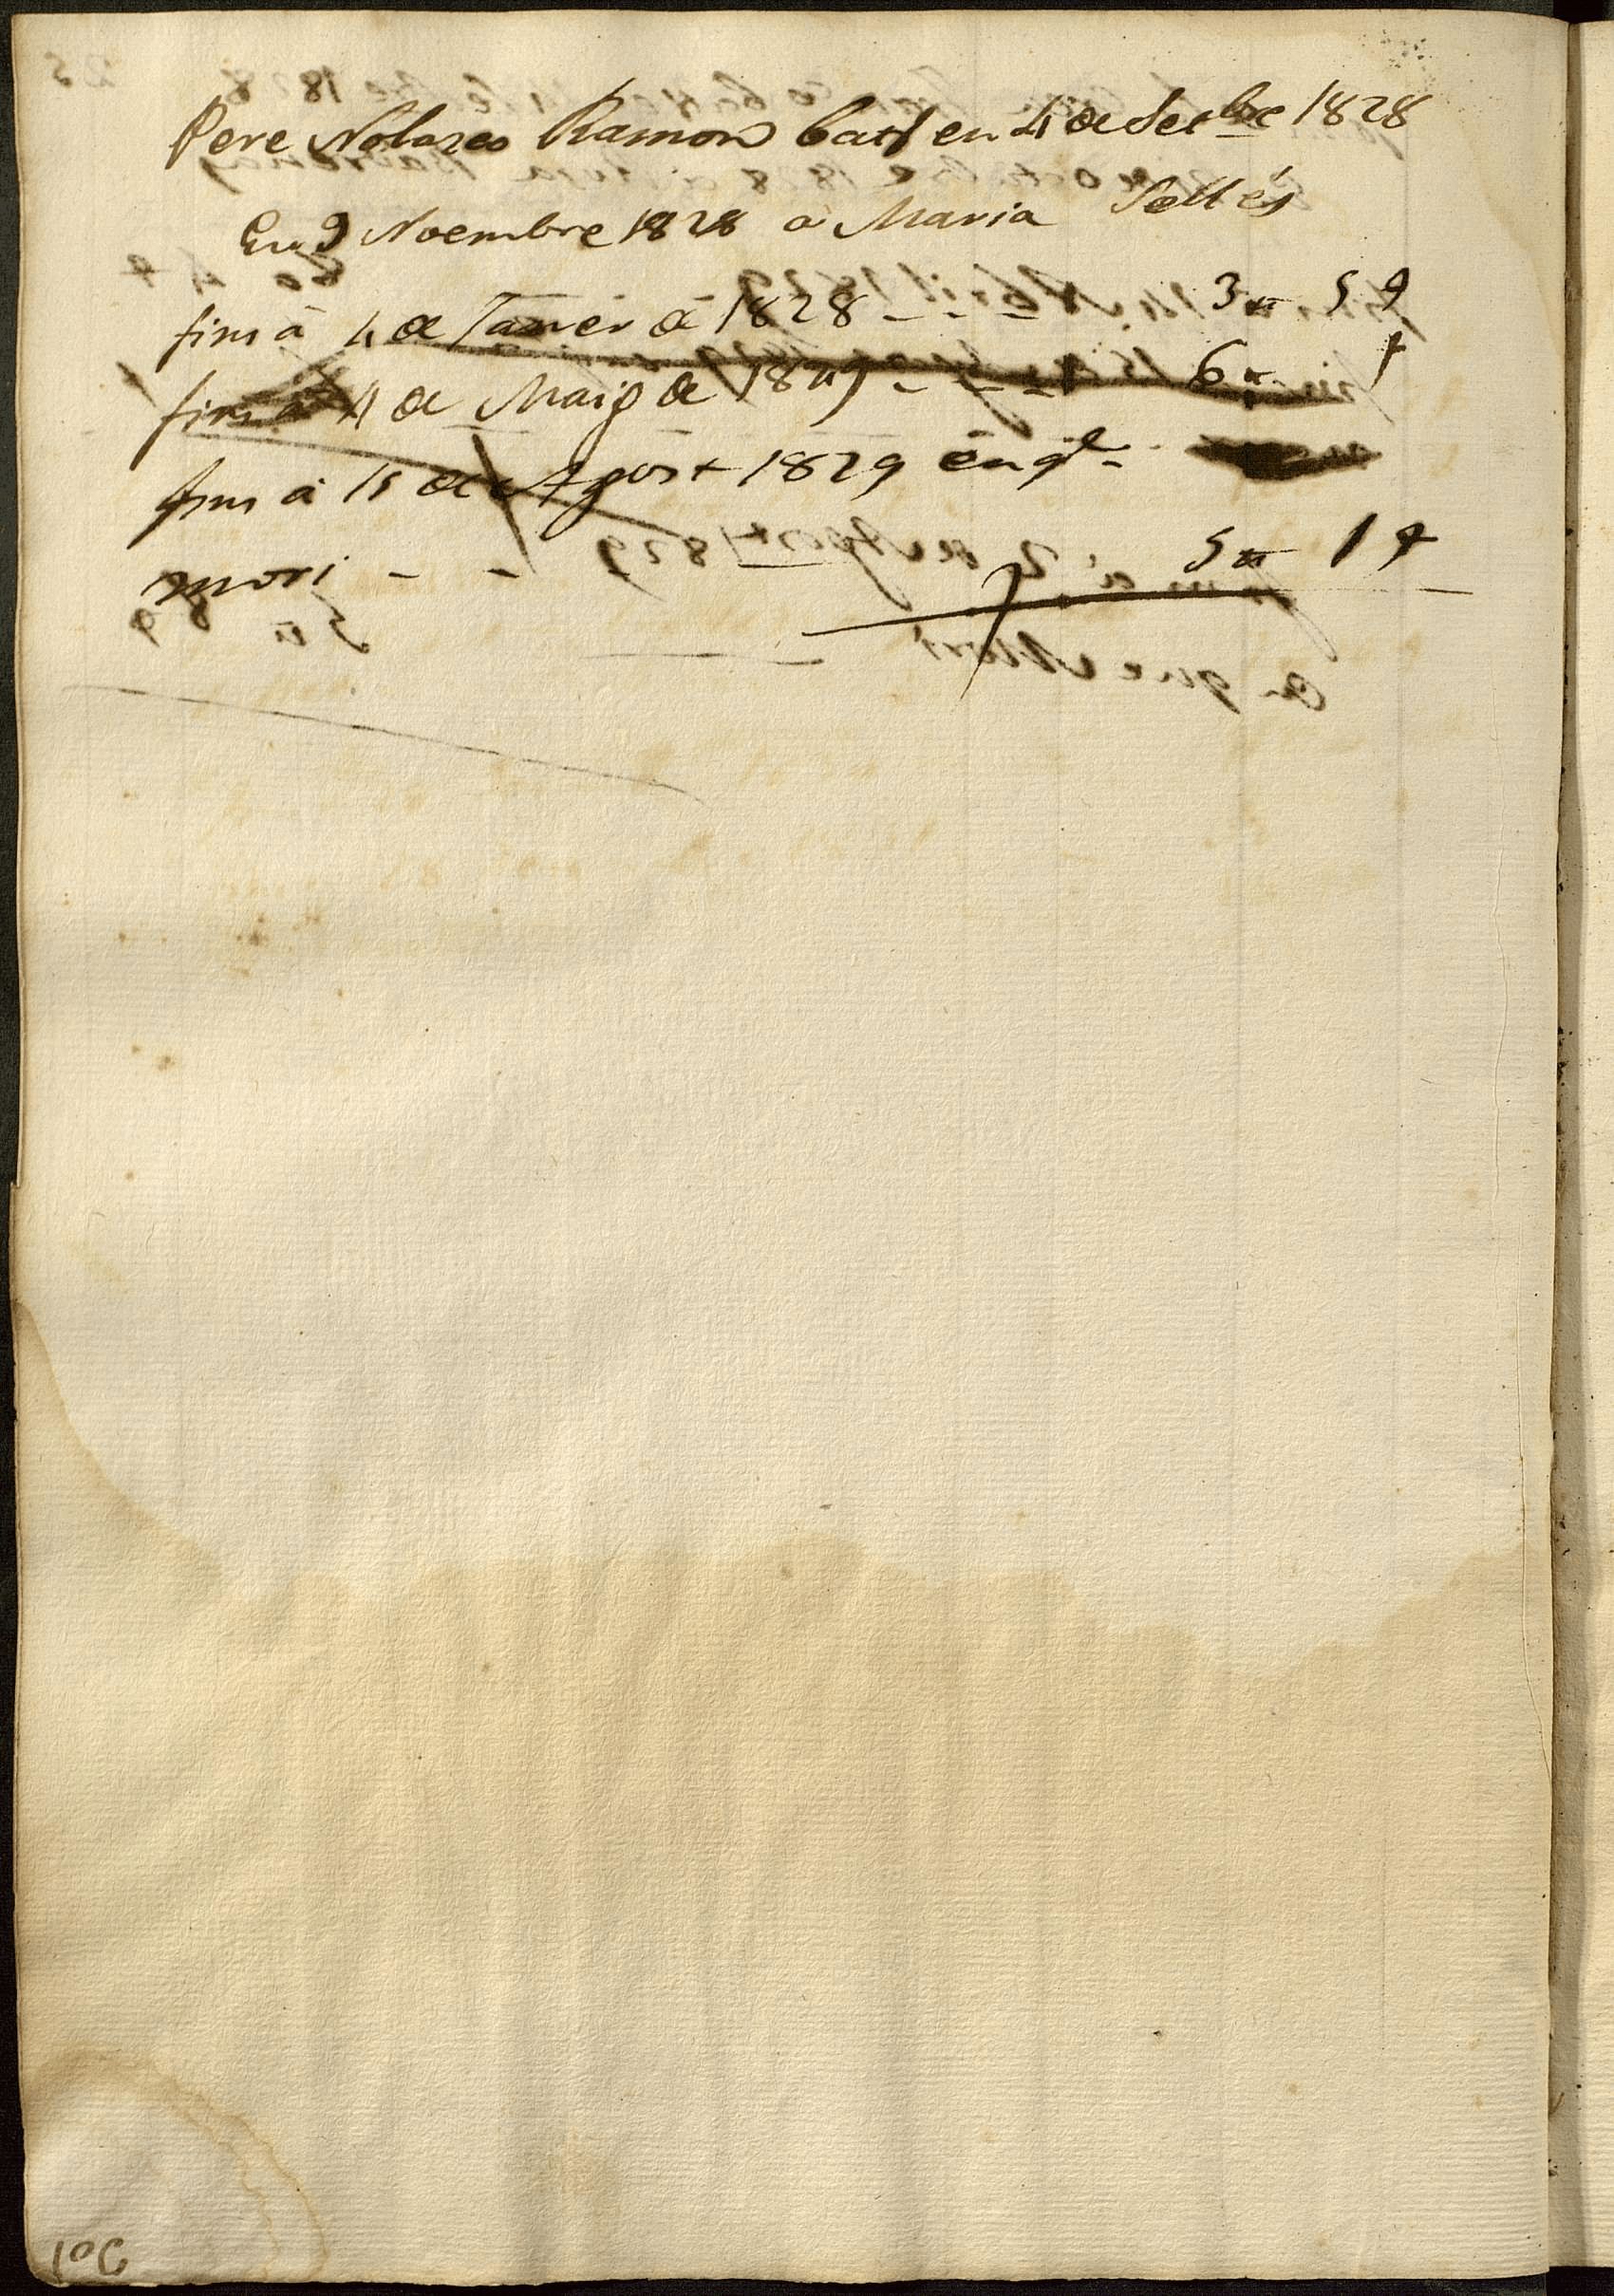 Pere Nolasco Ramon bat en 4 de Setbre 1828
En 9 Noembre 1828 a Maria Sellés
fins á 4 de Janér de 1828 - - - - 3 ₶ 5 9
fins á 4 de Maig de 1829 - - - - 6 ₶
fins á 15 de Agost 1829 en ql -
mori - - 5 ₶ 1 7